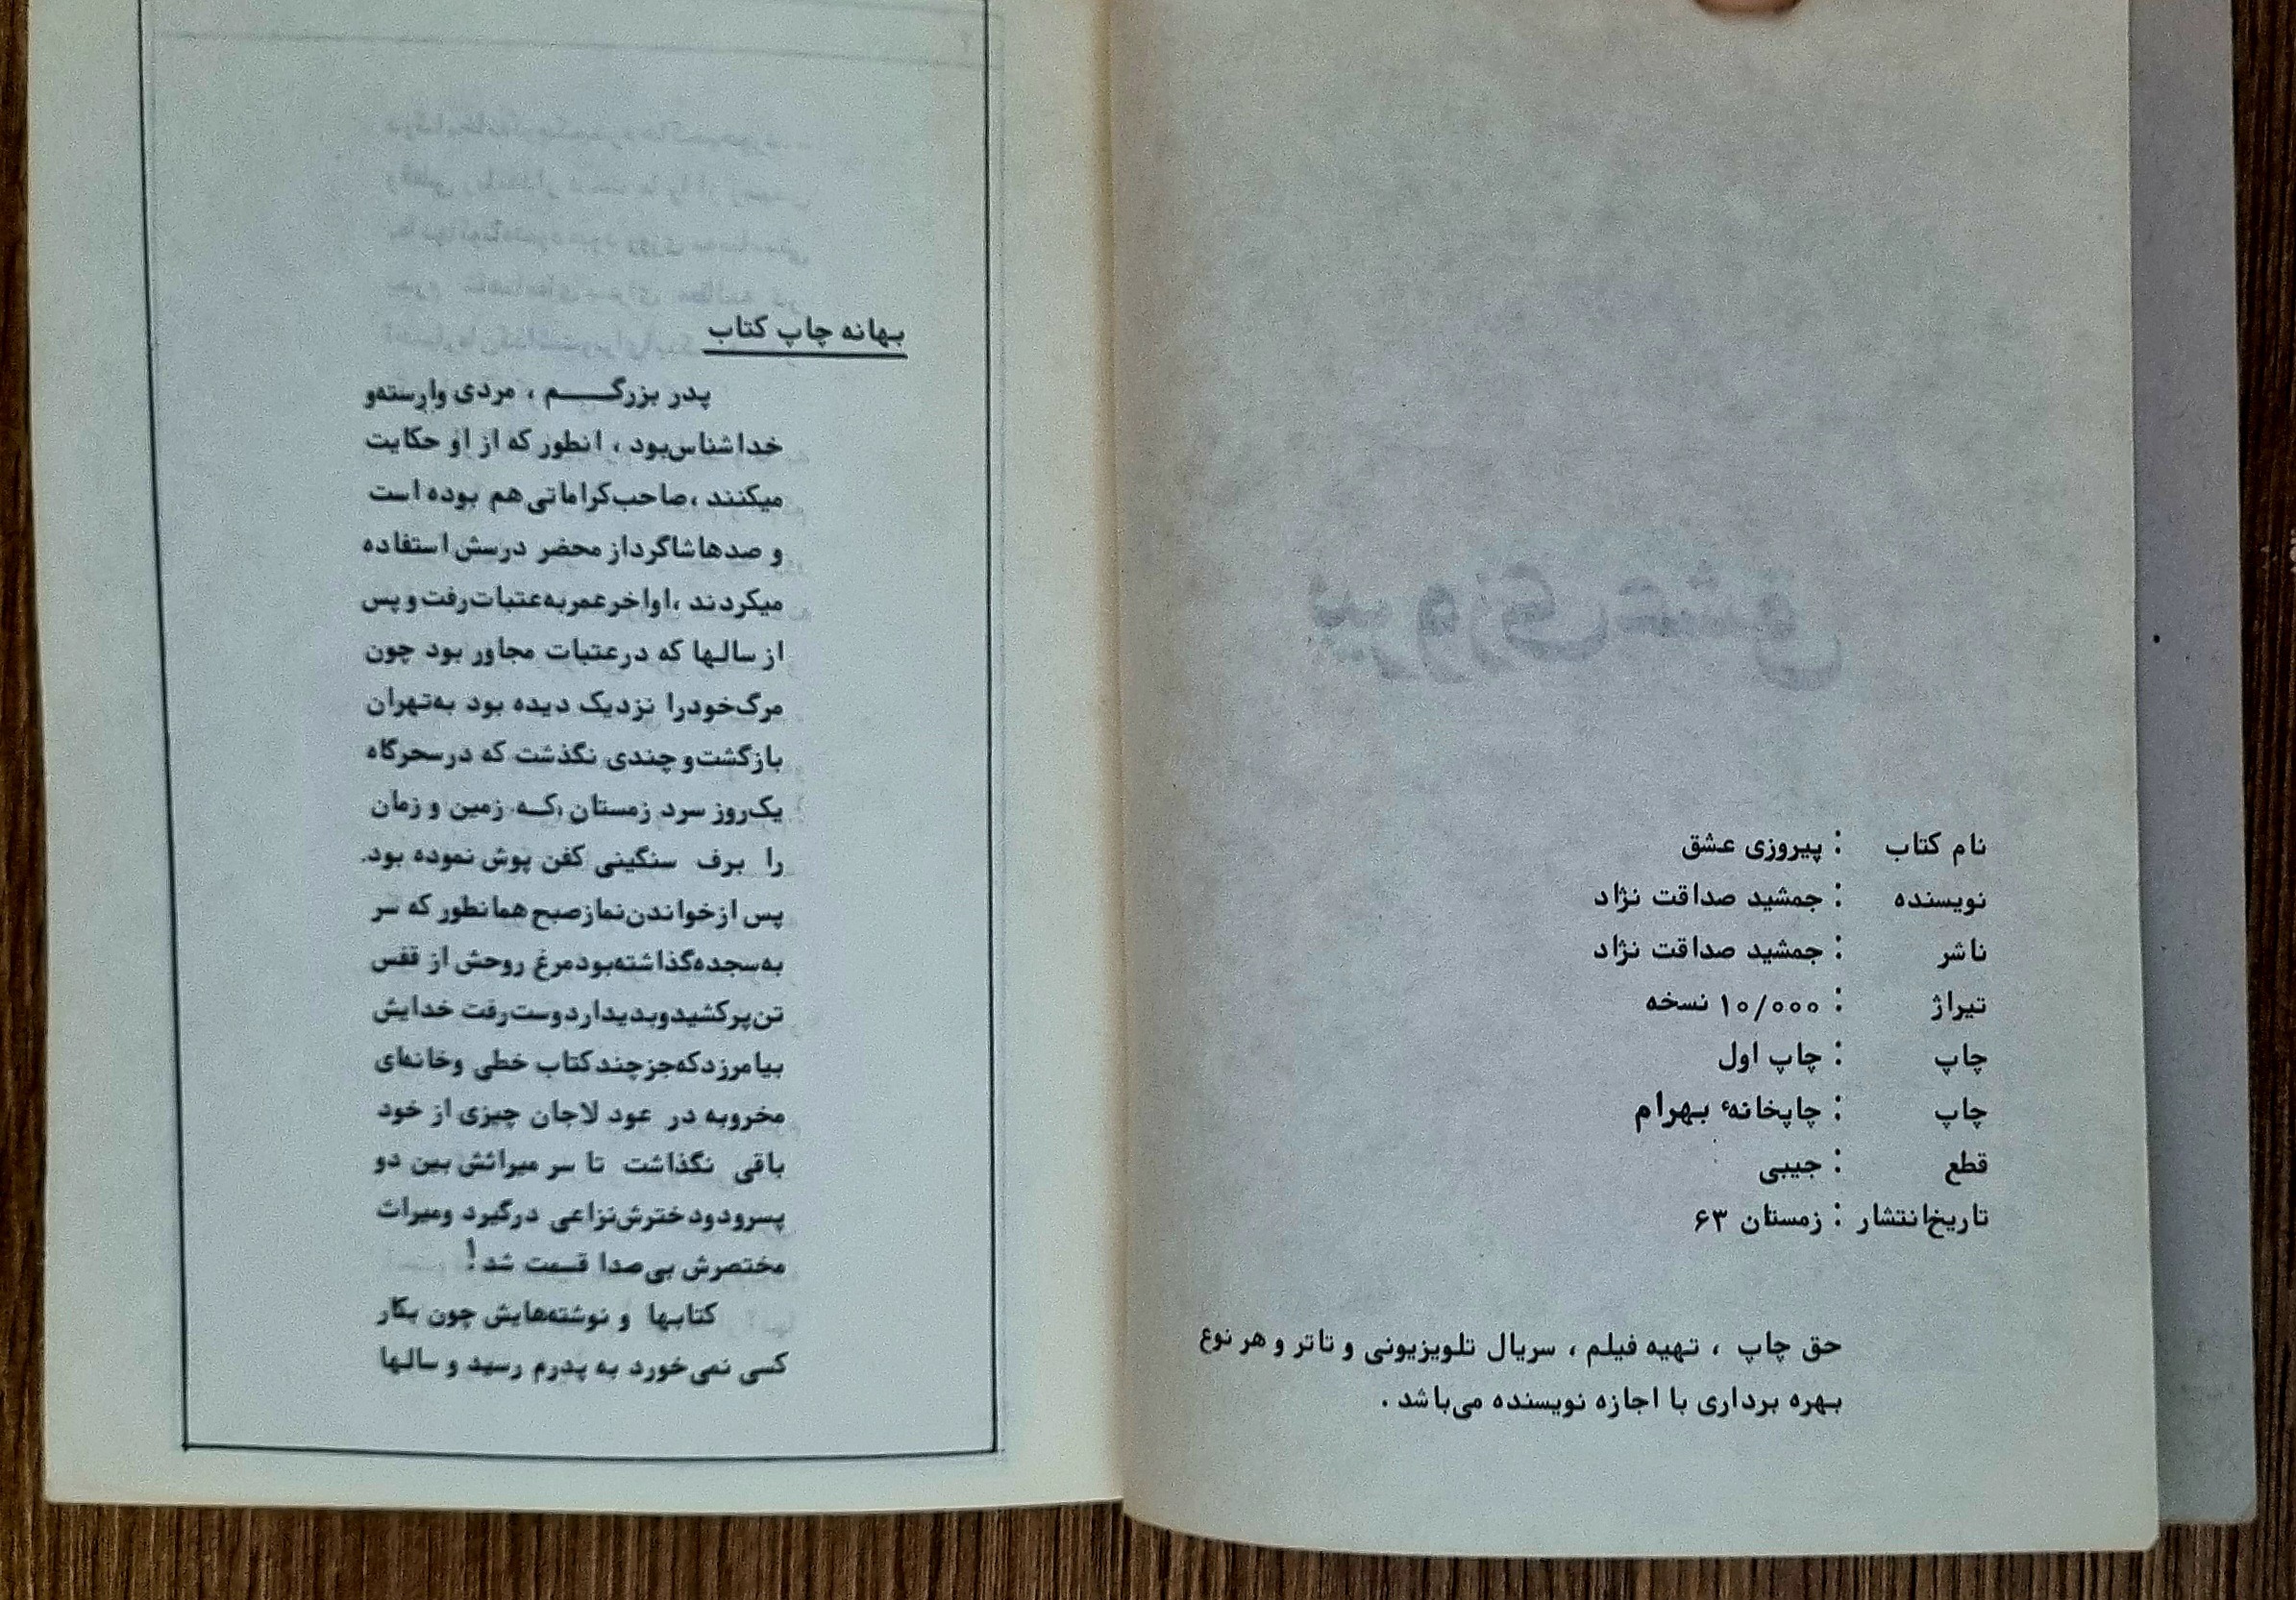 نام کتاب : پیروزی عشق
نویسنده : جمشید صداقت نژاد
ناشر : جمشید صداقت نژاد
تیراژ : ۱۰/۰۰۰ نسخه
چاپ : چاپ اول
چاپ : چاپخانهٔ بهرام
قطع : جیبی
تاریخ‌انتشار : زمستان ۶۳
حق چاپ ، تهیه فیلم ، سریال تلویزیونی و تاتر و هر نوع
بهره برداری با اجازه نویسنده می‌باشد .
بهانه چاپ کتاب
پدر بزرگـــم ، مردی وارسته‌و
خداشناس‌بود ، انطور که از او حکایت
میکنند ،صاحب‌کراماتی‌هم بوده است
و صدهاشاگرداز محضر درسش استفاده
میکردند ،اواخرعمربه‌عتبات‌رفت‌و پس
از سالها که درعتبات مجاور بود چون
مرگ‌خودرا نزدیک دیده بود به‌تهران
بازگشت‌و چندی نگذشت که درسحرگاه
یک‌روز سرد زمستان که زمین و زمان
را برف سنگینی کفن پوش نموده بود.
پس ازخواندن‌نمازصبح همانطور که سر
به‌سجده‌گذاشته‌بودمرغ روحش از قفس
تن‌پرکشیدوبدیداردوست‌رفت خدایش
بیامرزدکه‌جزچندکتاب خطی وخانه‌ای
مخروبه در عود لاجان چیزی از خود
باقی نگذاشت تا سر میراثش بین دو
پسرودودخترش‌نزاعی درگیرد ومیراث
مختصرش بی‌صدا قسمت شد !
کتابها و نوشته‌هایش چون بکار
کسی نمی‌خورد به پدرم رسید و سالها